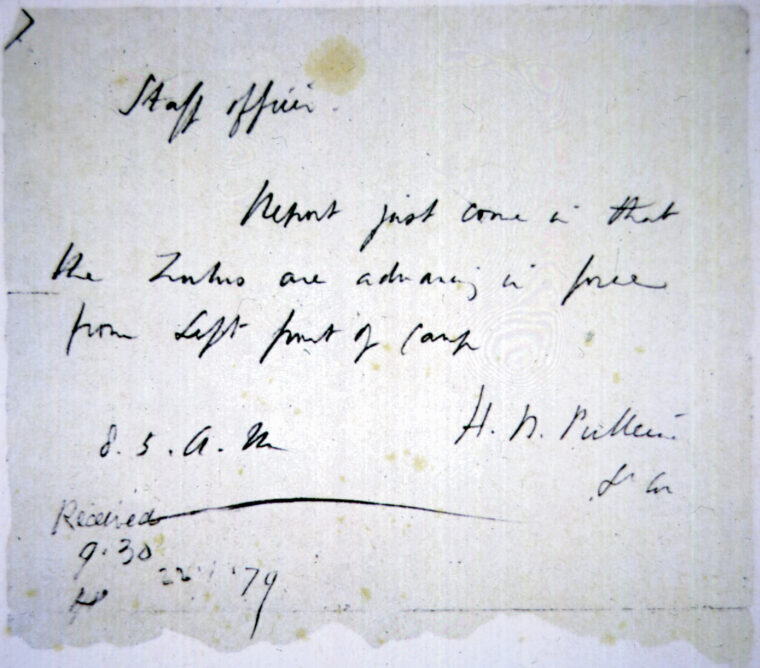 Staff officer.
Report just come in that
the Zulus are advancing in force
from Left front of Camp
8. 5. A. M
H. B. Pulleine
Lt Col
Received
9.30
22.1.79